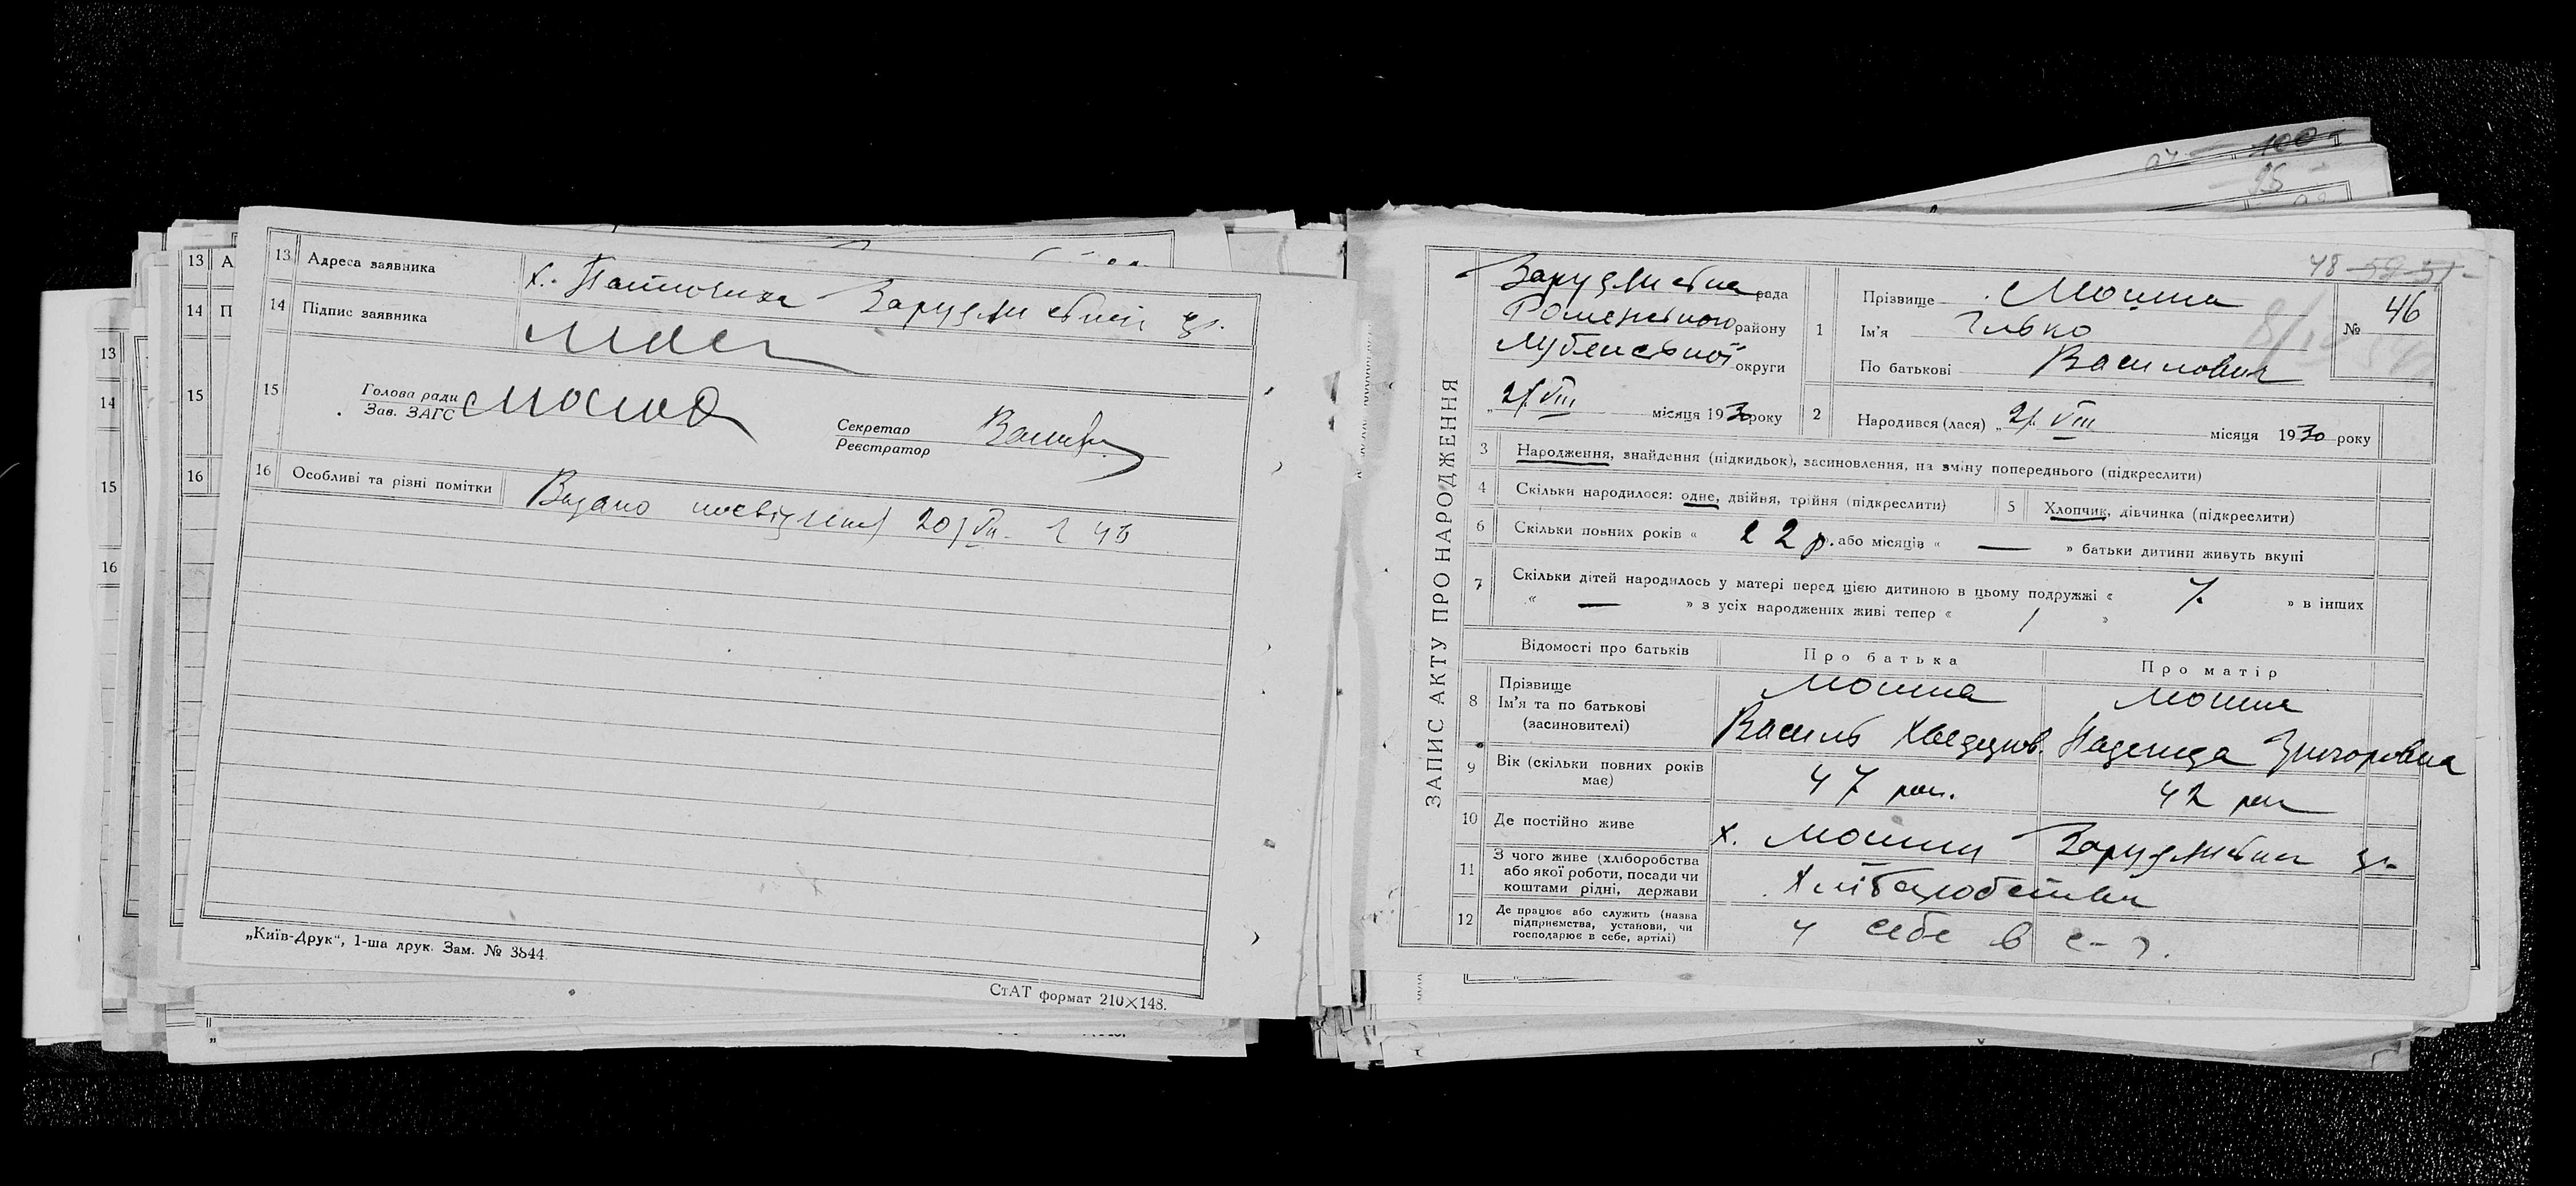 13 Адреса заявника х. Заруднська
14 Підпис заявника
15 Голова ради
Зав. ЗАГС
Секретар
Реєстратор
16 Особливі та різні помітки Видано посвідчен 20/VII 46
„Київ-Друк“, 1-ша друк. Зам. № 3844
СтАТ формат 210×148.
13 А
14 П
15
16
13
14
15
16
100
95
48 59 51
ЗАПИС АКТУ ПРО НАРОДЖЕННЯ
рада
району
Лубенської округи
21 VIII місяця 1930 року
1 Прізвище Мошна
Ім'я Гнько
По батькові Василович
№ 46
2 Народився (лася) „21 VIII місяця 1930 року
3 Народження, знайдення (підкидьок), засиновлення, на зміну попереднього (підкреслити)
4 Скільки народилося: одне, двійня, трійня (підкреслити) 5 Хлопчик, дівчинка (підкреслити)
6 Скільки повних років « 22 р. або місяців « — » батьки дитини живуть вкупі
7 Скільки дітей народилось у матері перед цією дитиною в цьому подружжі « 7. » в інших
« — » з усіх народжених живі тепер « / »
Відомості про батьків Про батька Про матір
8 Прізвище Мошна Мошна
Ім'я та по батькові
(засиновителі) Василь Хведуков. Надежда Григоровна
9 Вік (скільки повних років має) 47 рок. 42 рок
10 Де постійно живе х. Мошни
11 З чого живе (хліборобства
або якої роботи, посади чи
коштами рідні, держави Хліборобства
12 Де працює або служить (назва
підприємства, установи, чи
господарює в себе, артілі) у себе в с-г.